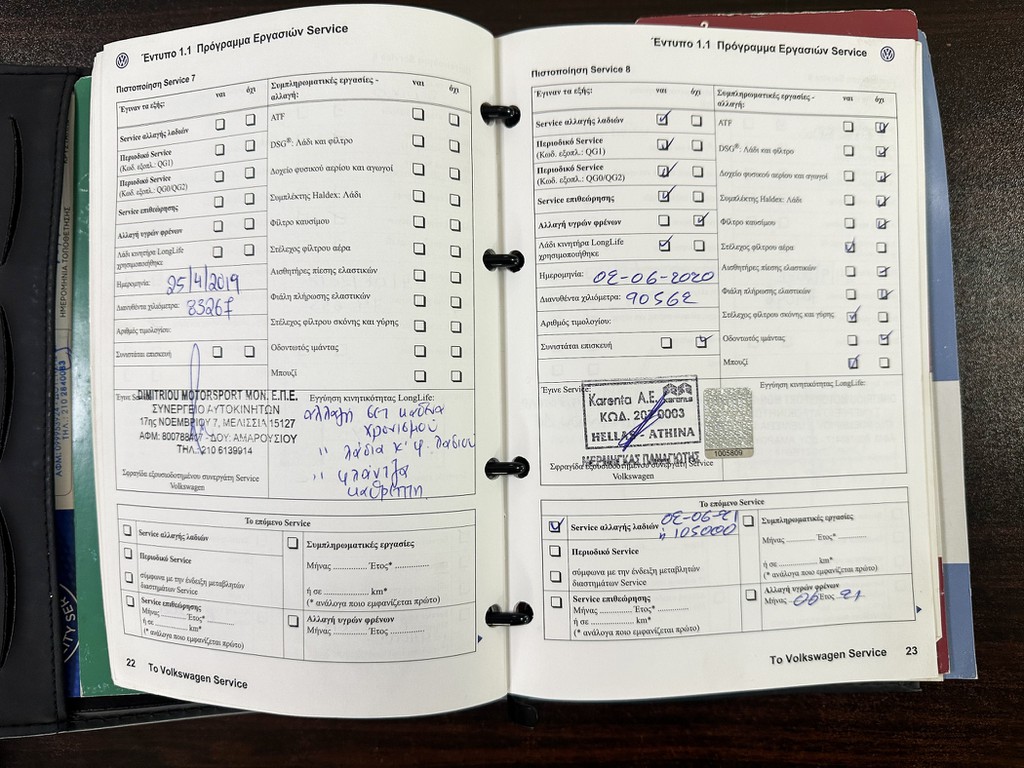 Έντυπο 1.1 Πρόγραμμα Εργασιών Service
Πιστοποίηση Service 7
Έγιναν τα εξής: ναι όχι
Service αλλαγής λαδιών
Περιοδικό Service
(Κωδ. εξοπλ.: QG1)
Περιοδικό Service
(Κωδ. εξοπλ.: QG0/QG2)
Service επιθεώρησης
Αλλαγή υγρών φρένων
Λάδι κινητήρα LongLife
χρησιμοποιήθηκε
Ημερομηνία: 25/4/2019
Διανυθέντα χιλιόμετρα: 83267
Αριθμός τιμολογίου:
Συνιστάται επισκευή
Συμπληρωματικές εργασίες -
αλλαγή: ναι όχι
ATF
DSG®: Λάδι και φίλτρο
Δοχείο φυσικού αερίου και αγωγοί
Συμπλέκτης Haldex: Λάδι
Φίλτρο καυσίμου
Στέλεχος φίλτρου αέρα
Αισθητήρες πίεσης ελαστικών
Φιάλη πλήρωσης ελαστικών
Στέλεχος φίλτρου σκόνης και γύρης
Οδοντωτός ιμάντας
Μπουζί
Έγινε Service
DIMITRIOU MOTORSPORT ΜΟΝ. Ε.Π.Ε.
ΣΥΝΕΡΓΕΙΟ ΑΥΤΟΚΙΝΗΤΩΝ
17ης ΝΟΕΜΒΡΙΟΥ 7, ΜΕΛΙΣΣΙΑ 15127
ΑΦΜ: ΔΟΥ: ΑΜΑΡΟΥΣΙΟΥ
ΤΗΛ.: 210 6139914
Σφραγίδα εξουσιοδοτημένου συνεργάτη Service
Volkswagen
Εγγύηση κινητικότητας LongLife:
αλλαγή σετ καδένα
χρονισμού
" λάδια κ' φ. λαδιού
" φλάντζα
Το επόμενο Service
Service αλλαγής λαδιών
Περιοδικό Service
σύμφωνα με την ένδειξη μεταβλητών
διαστημάτων Service
Service επιθεώρησης
Μήνας ........ Έτος* ............
ή σε ............. km*
(* ανάλογα ποιο εμφανίζεται πρώτο)
Συμπληρωματικές εργασίες
Μήνας ............ Έτος* ............
ή σε ................ km*
(* ανάλογα ποιο εμφανίζεται πρώτο)
Αλλαγή υγρών φρένων
Μήνας ............ Έτος ............
22 Το Volkswagen Service
Έντυπο 1.1 Πρόγραμμα Εργασιών Service
Πιστοποίηση Service 8
Έγιναν τα εξής: ναι όχι
Service αλλαγής λαδιών
Περιοδικό Service
(Κωδ. εξοπλ.: QG1)
Περιοδικό Service
(Κωδ. εξοπλ.: QG0/QG2)
Service επιθεώρησης
Αλλαγή υγρών φρένων
Λάδι κινητήρα LongLife
χρησιμοποιήθηκε
Ημερομηνία: 02-06-2020
Διανυθέντα χιλιόμετρα: 90562
Αριθμός τιμολογίου:
Συνιστάται επισκευή
Συμπληρωματικές εργασίες -
αλλαγή: ναι όχι
ATF
DSG®: Λάδι και φίλτρο
Δοχείο φυσικού αερίου και αγωγοί
Συμπλέκτης Haldex: Λάδι
Φίλτρο καυσίμου
Στέλεχος φίλτρου αέρα
Αισθητήρες πίεσης ελαστικών
Φιάλη πλήρωσης ελαστικών
Στέλεχος φίλτρου σκόνης και γύρης
Οδοντωτός ιμάντας
Μπουζί
Έγινε Service
Karenta A.E. karenta
ΚΩΔ. 207 0003
HELLAS - ATHINA
ΜΕΡΜΗΓΚΑΣ ΠΑΝΑΓΙΩΤΗΣ
1005809
Σφραγίδα εξουσιοδοτημένου συνεργάτη Service
Volkswagen
Εγγύηση κινητικότητας LongLife:
Το επόμενο Service
Service αλλαγής λαδιών 02-06-21
ή 105000
Περιοδικό Service
σύμφωνα με την ένδειξη μεταβλητών
διαστημάτων Service
Service επιθεώρησης
Μήνας ........ Έτος* ............
ή σε ............. km*
(* ανάλογα ποιο εμφανίζεται πρώτο)
Συμπληρωματικές εργασίες
Μήνας ............ Έτος* ............
ή σε ................ km*
(* ανάλογα ποιο εμφανίζεται πρώτο)
Αλλαγή υγρών φρένων
Μήνας 06 Έτος 21
Το Volkswagen Service 23